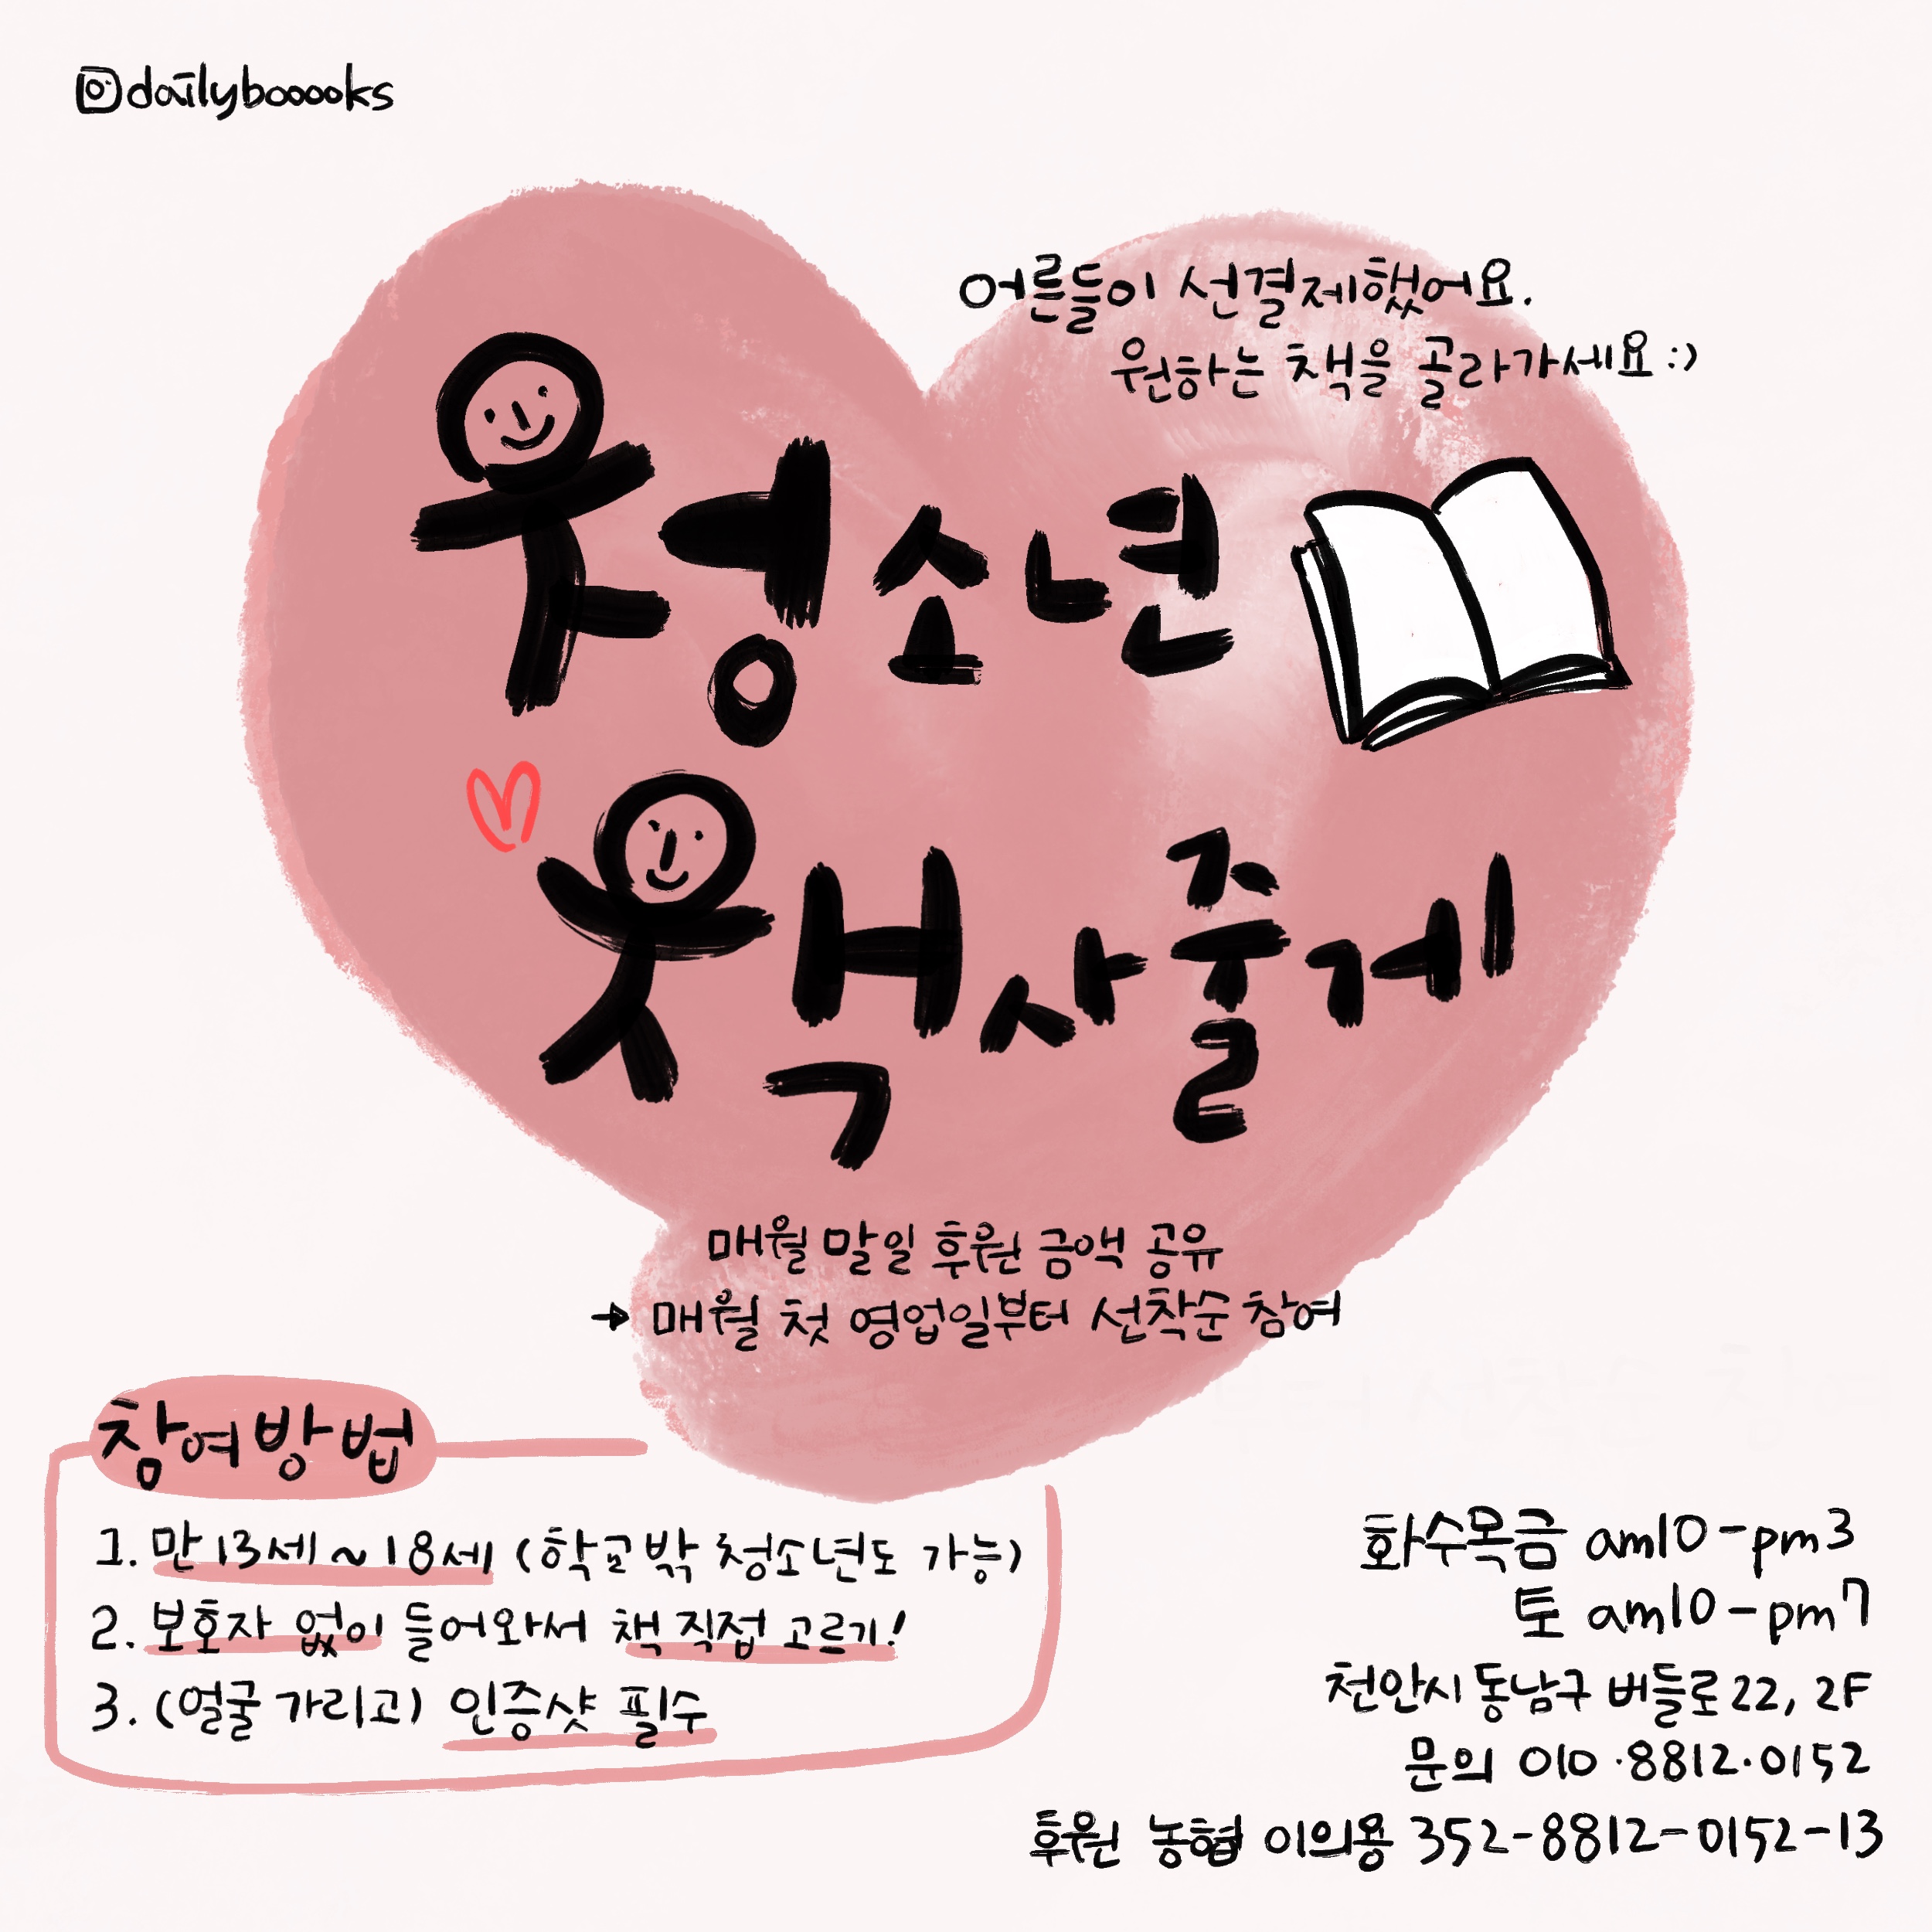 dailybooooks
어른들이 선결제했어요.
원하는 책을 골라가세요 :)
청소년
책사줄게
매월 말일 후원 금액 공유
→ 매월 첫 영업일부터 선착순 참여
참여방법
1. 만 13세 ~ 18세 (학교밖 청소년도 가능)
2. 보호자 없이 들어와서 책 직접 고르기!
3. (얼굴 가리고) 인증샷 필수
화수목금 am10-pm3
토 am10-pm7
천안시 동남구 버들로 22, 2F
문의 010·8812·0152
후원 농협 이의용 352-8812-0152-13